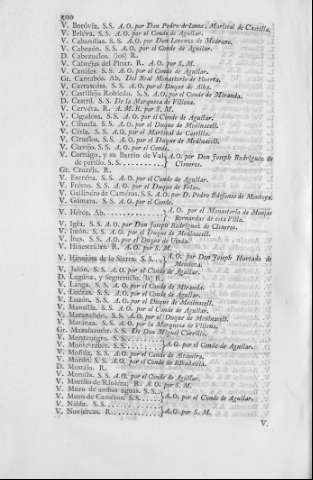 500
V. Boròvia. S. S. A. O. por Don Pedro de Luna, Mariscal de Castilla.
V. Brieva. S. S. A. O. por el Conde de Aguilar.
V. Cabanillas. S. S. A. O. por Don Lorenzo de Medrano.
V. Cabezòn. S. S. A. O. por el Conde de Aguilar.
D. Cabezuelos. (los) R.
V. Cabrejas del Pinar. R. A. O. por S. M.
V. Canales. S. S. A. O. por el Conde de Aguilar.
Gr. Cantabòs. Ab. Del Real Monasterio de Huerta.
V. Carrascosa. S. S. A. O. por el Duque de Alba.
V. Castillejo Robledo. S. S. A. O. por el Conde de Miranda.
D. Castril. S. S. De la Marquesa de Villena.
V. Cervera. R. A. M. R. por S. M.
V. Cigudosa. S. S. A. O. por el Conde de Aguilar.
V. Cihuela. S. S. A. O. por el Duque de Medinaceli.
V. Ciria. S. S. A. O. por el Mariscal de Castilla.
V. Ciruelos. S. S. A. O. por el Duque de Medinaceli.
V. Clavijo. S. S. A. O. por el Conde.
V. Cornago, y su Barrio de Val- A. O. por Don Joseph Rodriguez de
de perillo. S. S. Cisneros.
Gr. Cruzejo. R.
V. Enciso. S. S. A. O. por el Conde de Aguilar.
V. Frèsno. S. S. A. O. por el Duque de
V. Gallinero de Cameros. S. S. A. O. por D. Pedro Ildefonso de Montoya.
V. Gòmara. S. S. A. O. por el Conde.
V. Hèrce. Ab. A. O. por el Monasterio de Monjas
Bernardas de esta Villa.
V. Igèa. S. S. A. O. por Don Joseph Rodriguez de Cisneros.
V. Imòn. S. S. A. O. por el Duque de Medinaceli.
V. Ines. S. S. A. O. por el Duque de Uzeda.
V. Hinestrillas. R. A. O. por S. M.
V. Hinojosa de la Sierra. S. S. A. O. por Don Joseph Hurtado de
Mendoza.
V. Jalòn. S. S. A. O. por el Conde de Aguilar.
D. Laguna, y Segoviela. (la) R.
V. Langa. S. S. A. O. por el Conde de Miranda.
V. S. S. A. O. por el Conde de Aguilar.
V. Luzòn. S. S. A. O. por el Duque de Medinaceli.
V. Mansilla. S. S. A. O. por el Conde de Aguilar.
V. Maranchòn. S. S. A. O. por el Duque de Medinaceli.
V. Matanza. S. S. A. O. por la Marquesa de Villena.
Gr. Mazalacete. S. S. De Don Miguel Castejòn.
V. Montenegro. S. S.
V. Monterrubio. S. S. A. O. por el Conde de Aguilar.
V. S. S. A. O. por el Conde de Altamira.
V. S. S. A. O. por el Conde de Ribadavia.
D. R.
V. S. S. A. O. por el Conde de Aguilar.
V. R. A. O. por S. M.
V. Muro de aguas. S. S.
V. Muro de Cameros. S. S. A. O. por el Conde de Aguilar.
V. S. S.
V. Noviercas. R. A. O. por S. M.
V.